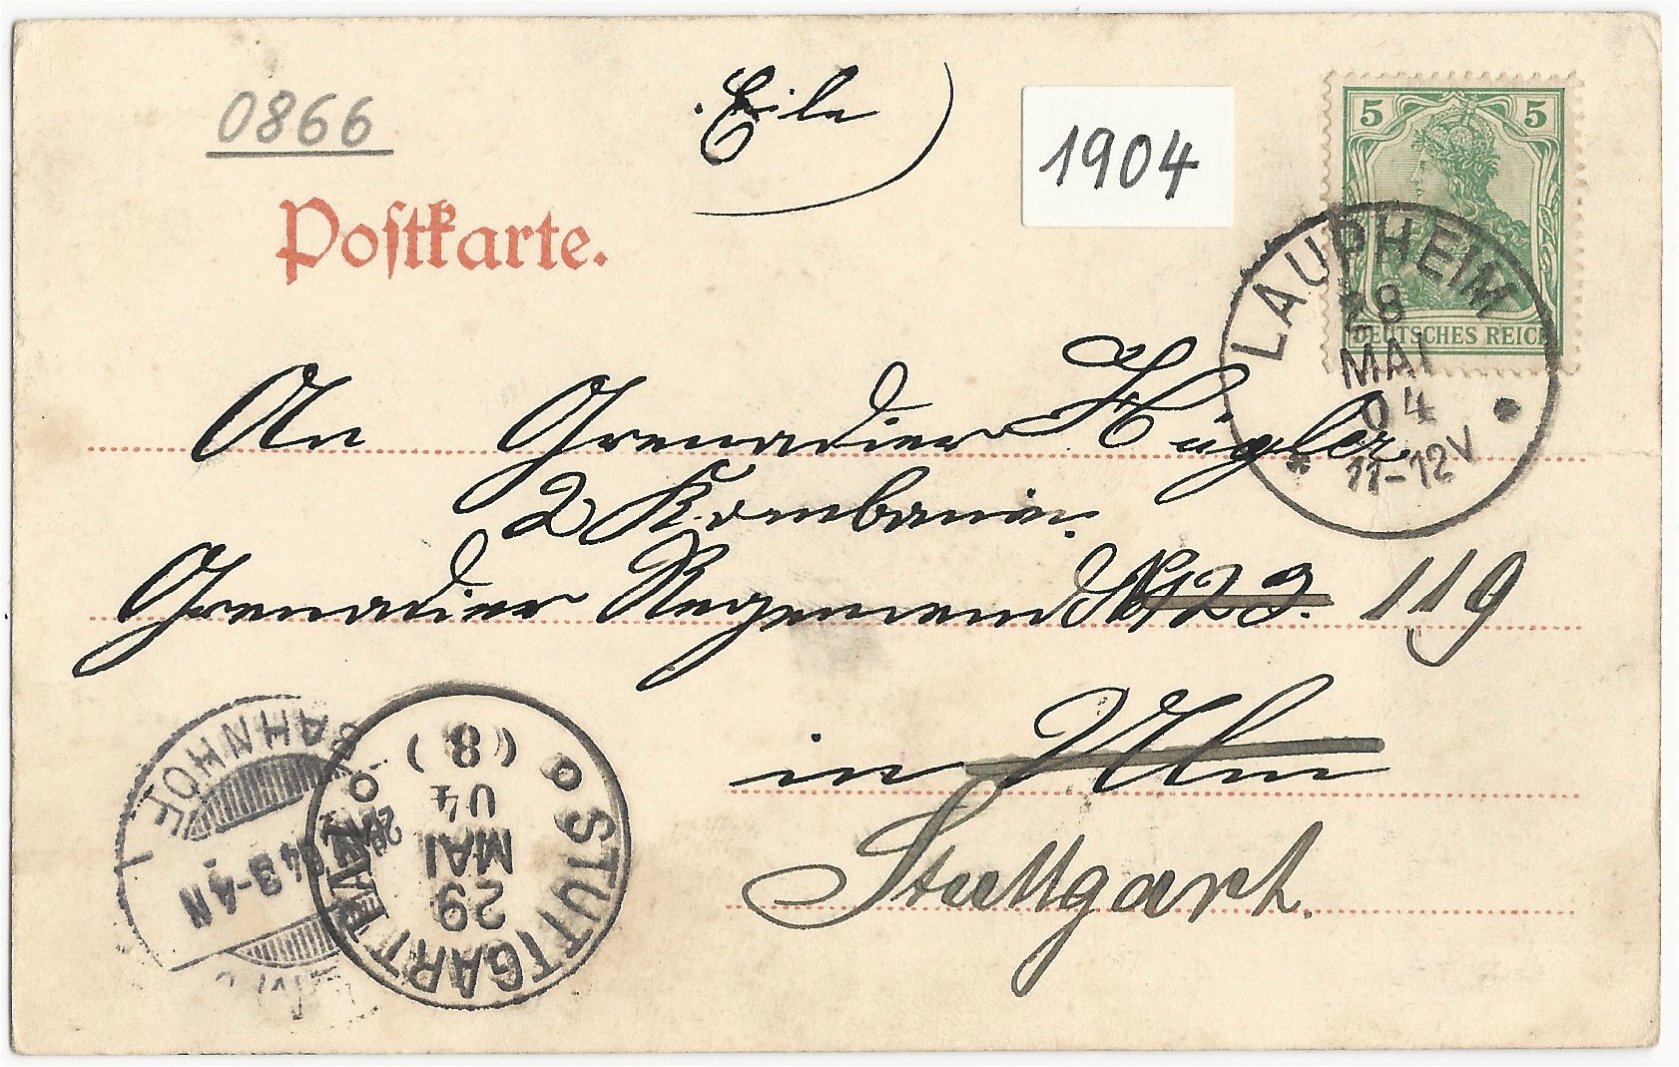 0866
Eile
1904
Postkarte.
5 5
DEUTSCHES REICH
LAUPHEIM
28
MAI
04
11-12V
An Grenadier Hügler
2 Kombanie.
Grenadier Regemend No 123. 119
in Ulm
Stuttgart.
BAHNHOF
3-4N
STUTTGART
29
MAI
04
(8)